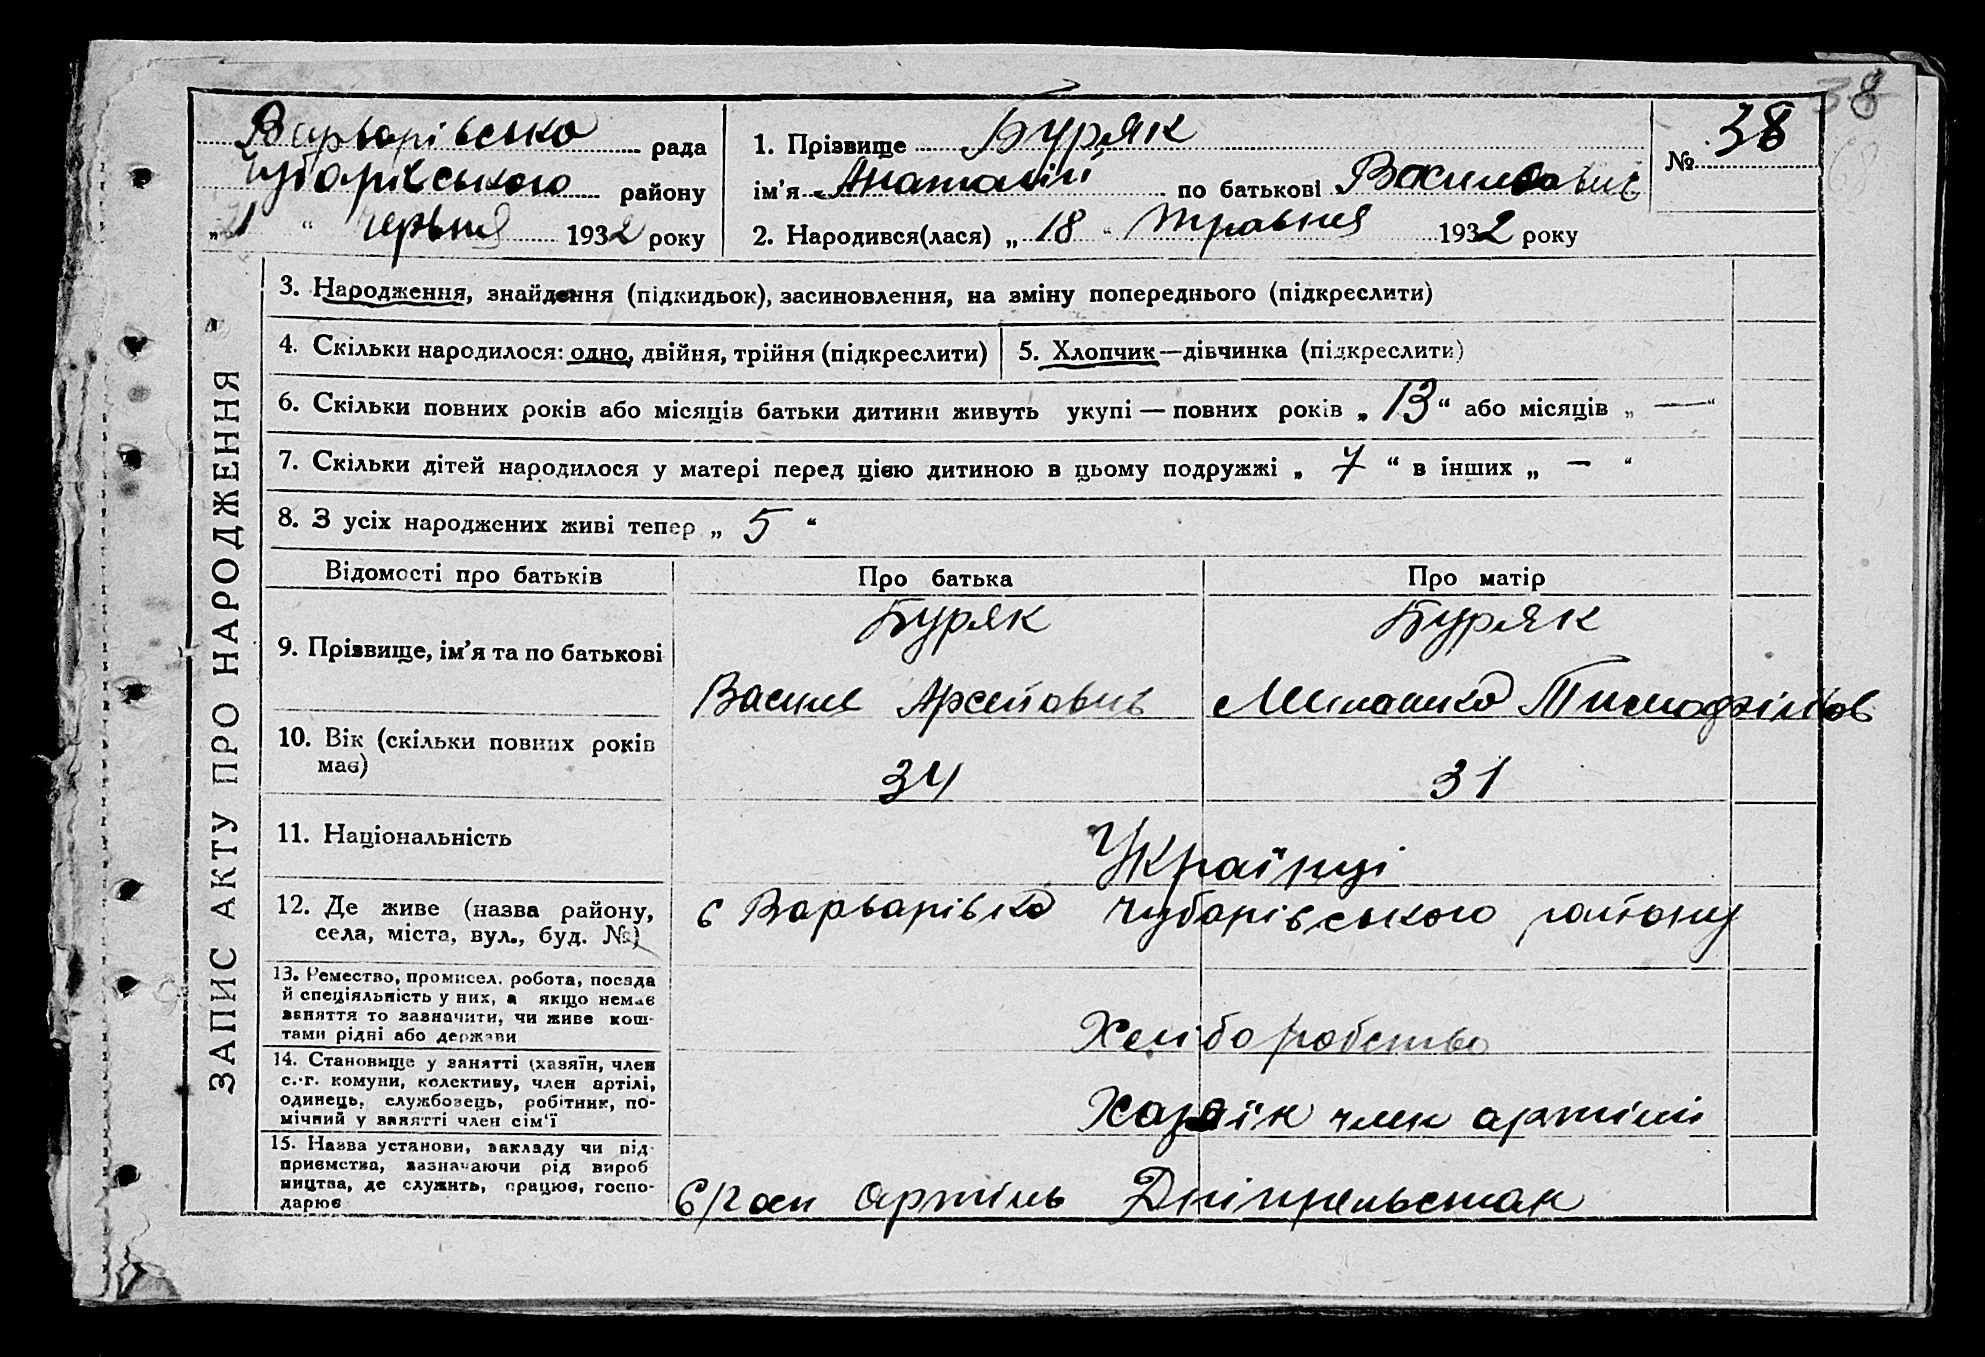 38
Варварівська рада
Чубарівського району
„ 1 “ червня 1932 року
1. Прізвище Буряк
ім’я Анатолій по батькові Васильович
№ 38
2. Народився(лася) „ 18 “ травня 1932 року
ЗАПИС АКТУ ПРО НАРОДЖЕННЯ
3. Народження, знайдення (підкидьок), засиновлення, на зміну попереднього (підкреслити)
4. Скільки народилося: одно, двійня, трійня (підкреслити)
5. Хлопчик—дівчинка (підкреслити)
6. Скільки повних років або місяців батьки дитини живуть укупі — повних років „ 13 “ або місяців „ — “
7. Скільки дітей народилося у матері перед цією дитиною в цьому подружжі „ 7 “ в інших „ — “
8. З усіх народжених живі тепер „ 5 “
Відомості про батьків
Про батька
Про матір
9. Прізвище, ім’я та по батькові
Буряк
Буряк
Василь
Тимофіївн
10. Вік (скільки повних років
має)
34
31
11. Національність
Українці
12. Де живе (назва району,
села, міста, вул., буд. №)
с Варварівка Чубарівського району
13. Ремество, промисел. робота, посада
й спеціяльність у них, а якщо немає
заняття то зазначити, чи живе кош-
тами рідні або держави
Хліборобство
14. Становище у занятті (хазяїн, член
с.-г. комуни, колективу, член артілі,
одинець, службовець, робітник, по-
мічний у занятті член сім'ї
Хазяїн член артілі
15. Назва установи, закладу чи під-
приємства, зазначаючи рід вироб
ництва, де служить, працює, госпо-
дарює
С/госп артіль Дніпрельстан